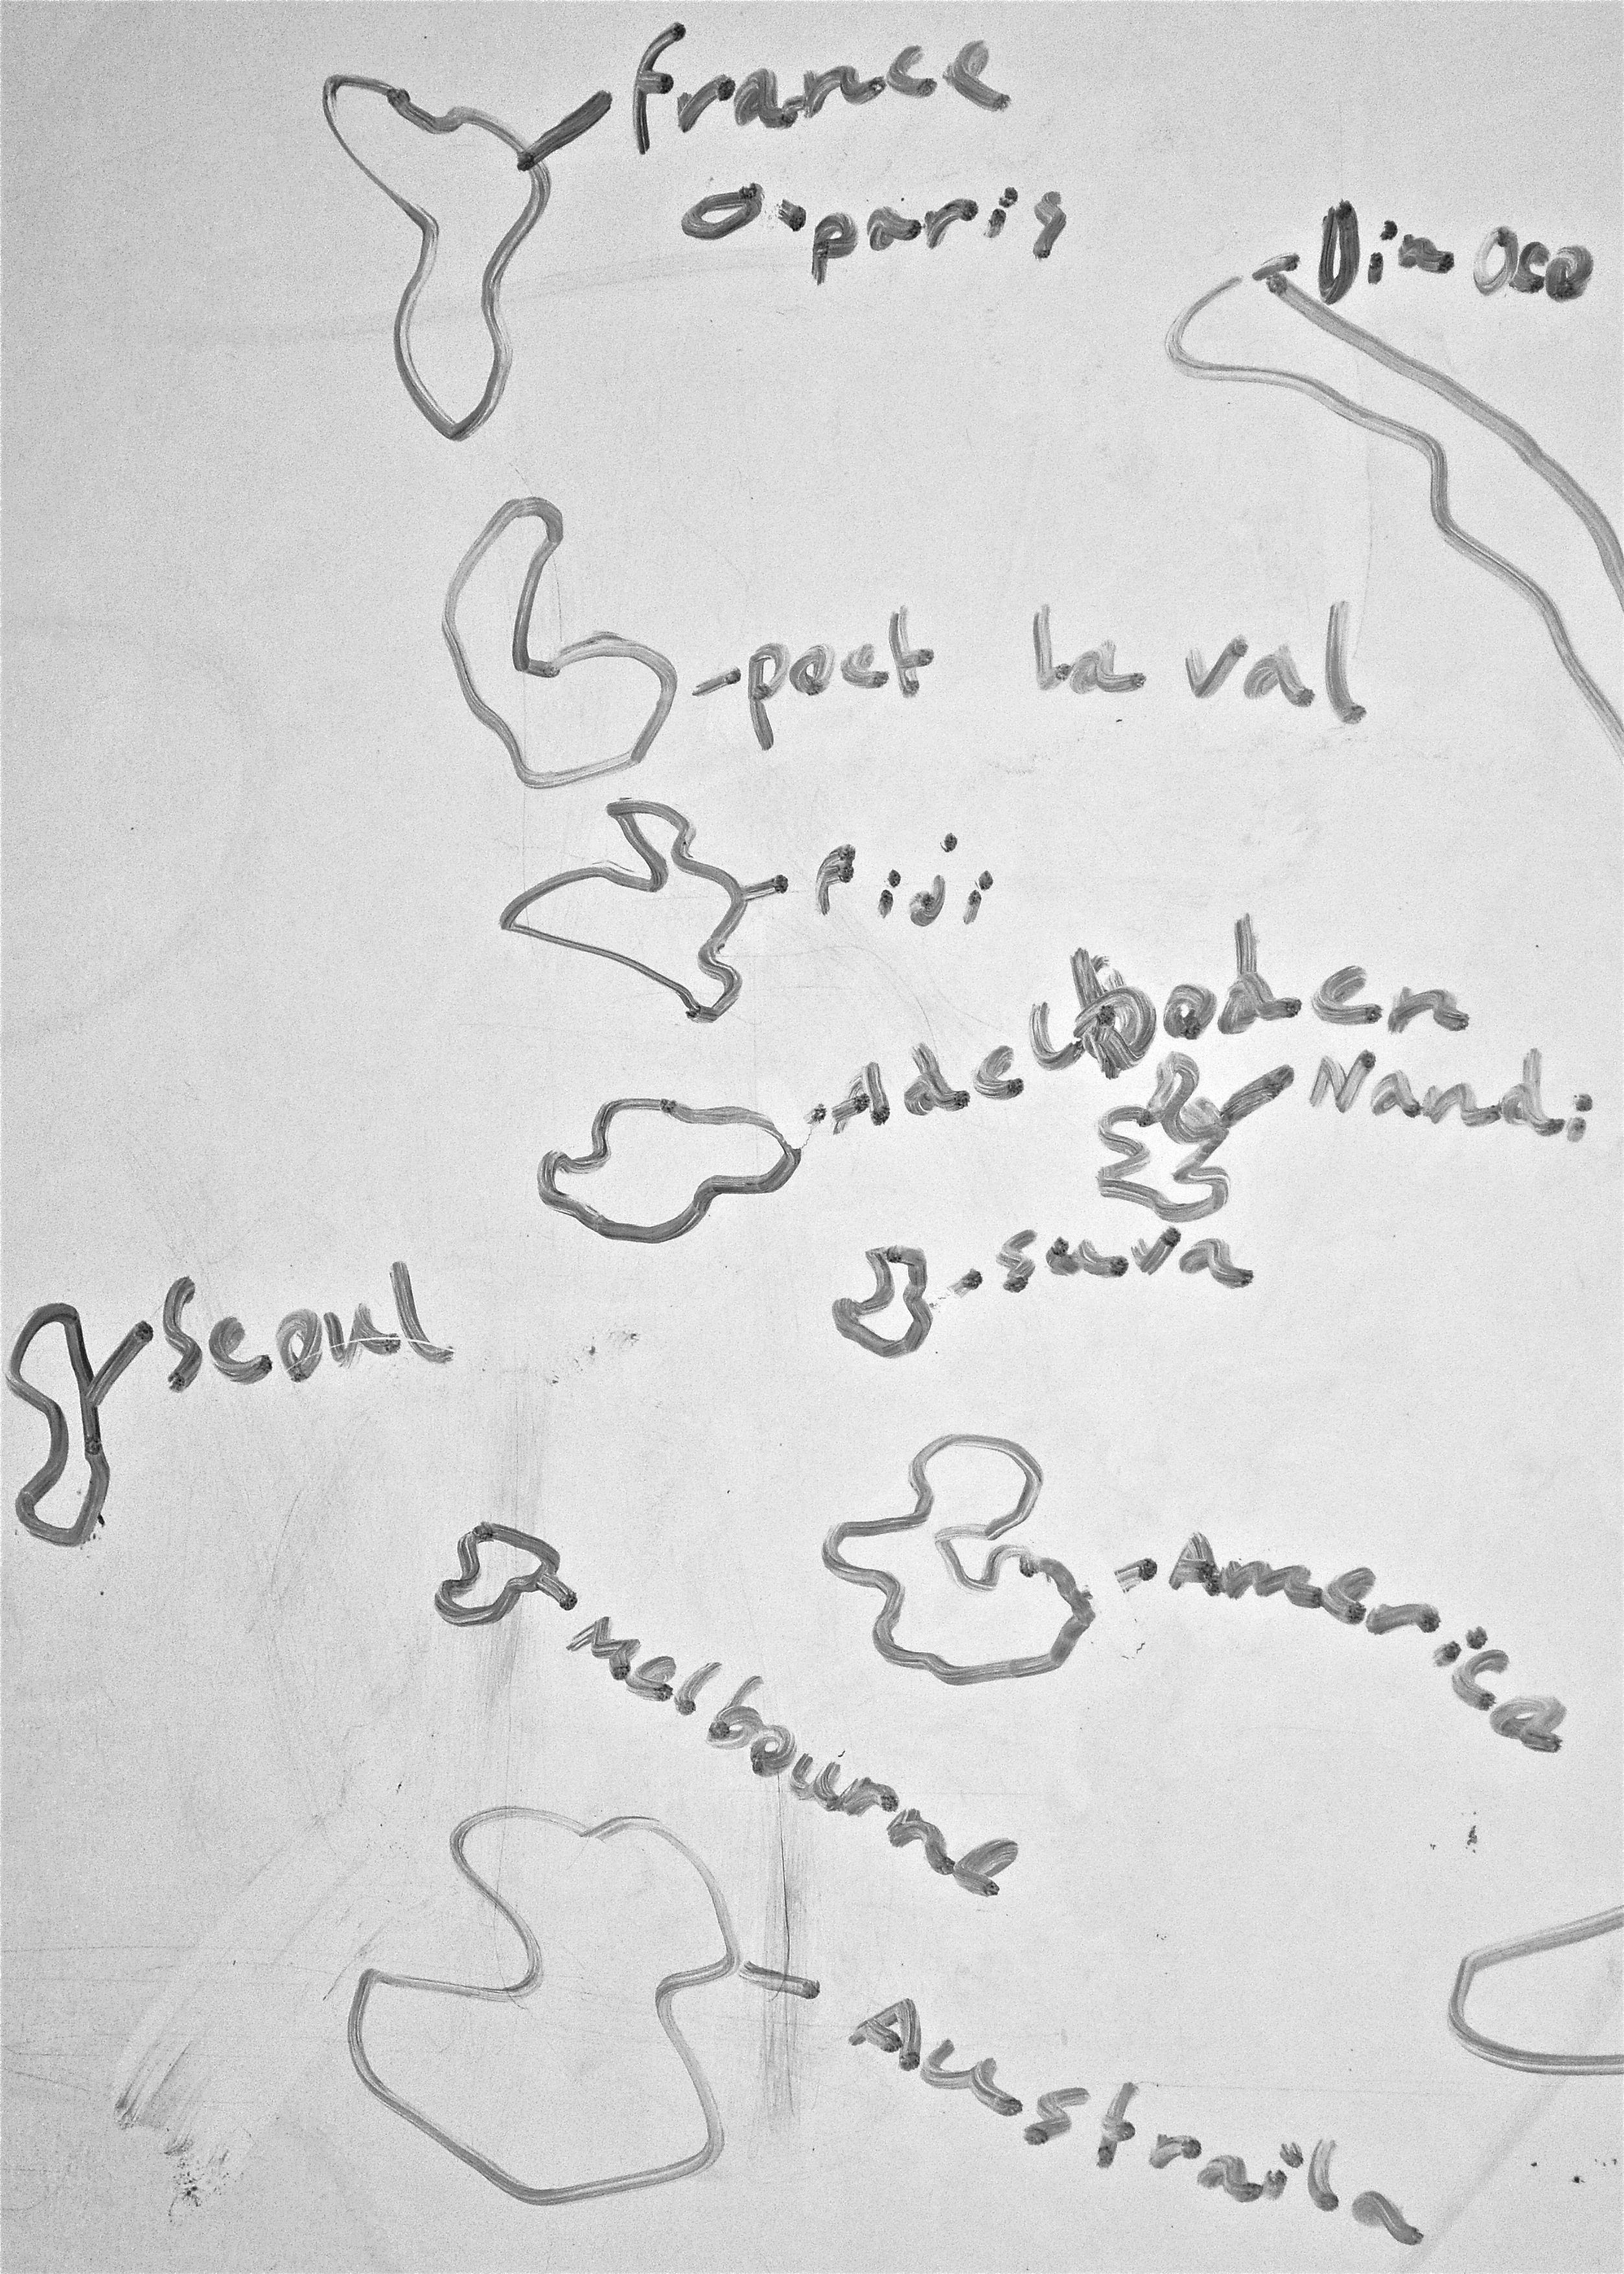 france
paris
poet la val
fiji
Adelboden
Nandi
suva
Seoul
America
Melbourne
Austraila